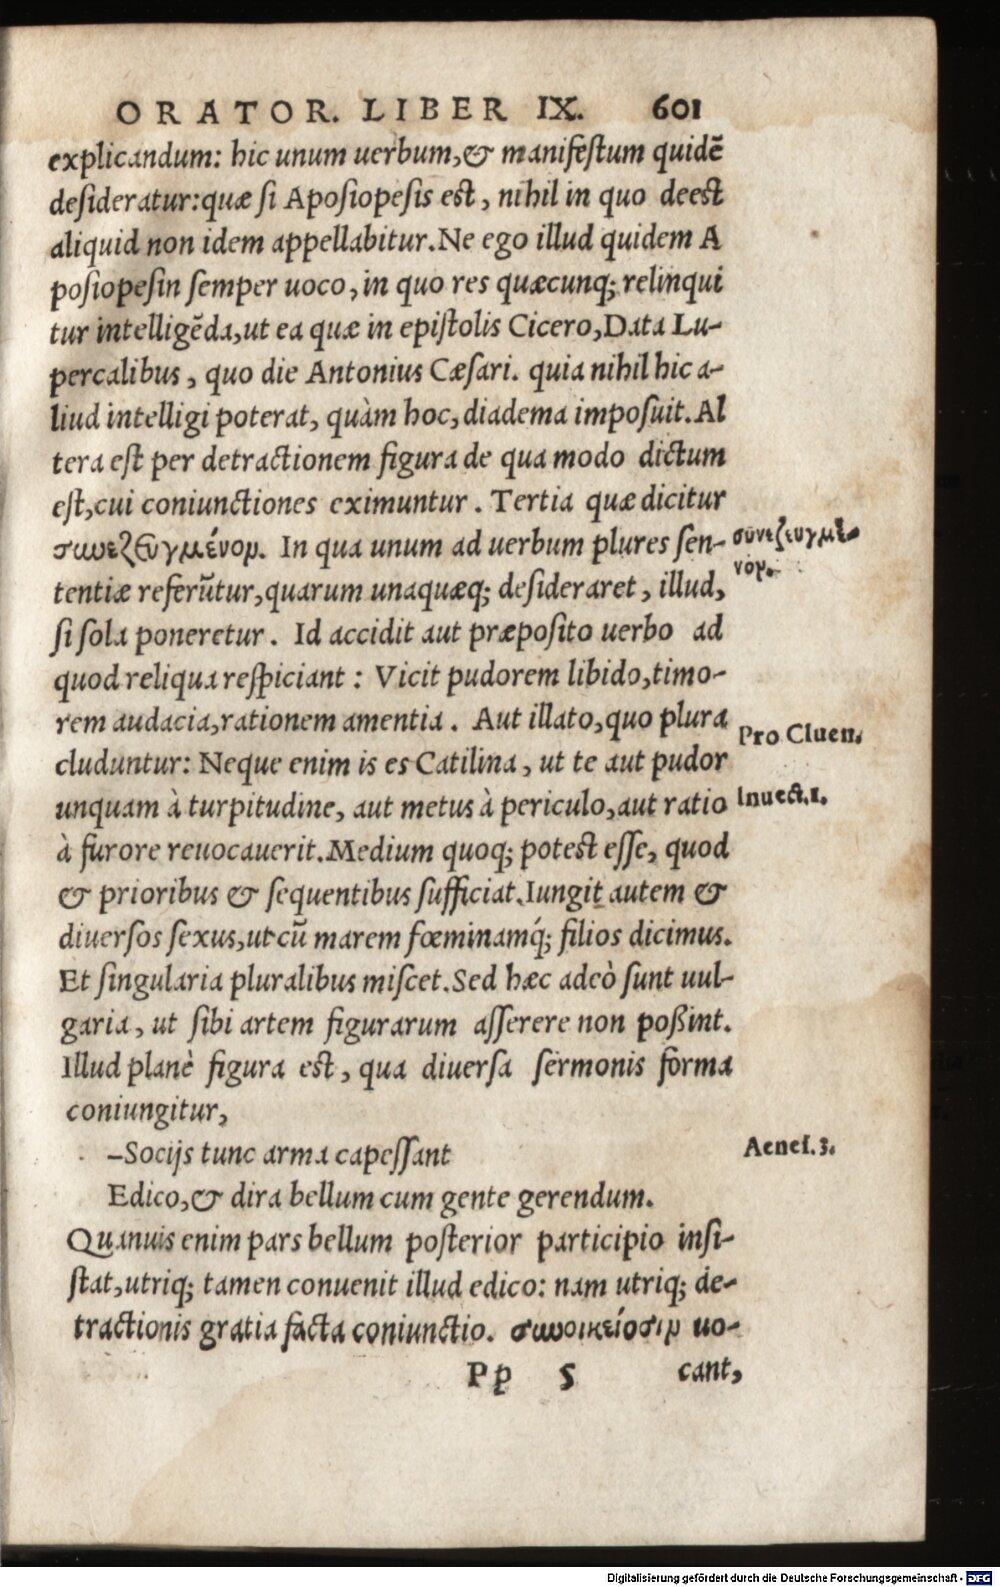 ORATOR. LIBER IX. 601
explicandum: hic unum uerbum,& manifeſtum quidẽ
deſideratur:quæ ſi Apoſiopeſis eſt, nihil in quo deeſt
aliquid non idem appellabitur.Ne ego illud quidem A
poſiopeſin ſemper uoco, in quo res quæcunq; relinqui
tur intelligẽda,ut ea quæ in epiſtolis Cicero,Data Lu-
percalibus, quo die Antonius Cæſari. quia nihil hic a-
liud intelligi poterat, quàm hoc, diadema impoſuit. Al
tera eſt per detractionem figura de qua modo dictum
eſt,cui coniunctiones eximuntur. Tertia quæ dicitur
συνεζευγμένον. In qua unum ad uerbum plures ſen-
συνεζευγμέ-
νον.
tentiæ referũtur,quarum unaquæq; deſideraret, illud,
ſi ſola poneretur. Id accidit aut præpoſito uerbo ad
quod reliqua reſpiciant: Vicit pudorem libido,timo-
rem audacia,rationem amentia. Aut illato,quo plura
Pro Cluen.
cluduntur: Neque enim is es Catilina, ut te aut pudor
unquam à turpitudine, aut metus à periculo,aut ratio
Inuect.1.
à furore reuocauerit.Medium quoq; poteſt eſſe, quod
& prioribus & ſequentibus ſufficiat.Iungit autem &
diuerſos ſexus,ut cũ marem fœminamq́; filios dicimus.
Et ſingularia pluralibus miſcet.Sed hæc adeò ſunt uul-
garia, ut ſibi artem figurarum aſſerere non poßint.
Illud planè figura eſt, qua diuerſa ſermonis forma
coniungitur,
–Socijs tunc arma capeſſant
Aeneſ.3.
Edico,& dira bellum cum gente gerendum.
Quanuis enim pars bellum poſterior participio inſi-
ſtat,utriq; tamen conuenit illud edico: nam utriq; de-
tractionis gratia facta coniunctio. συνοικείοσιν uo-
Pp 5 cant,
Digitalisierung gefördert durch die Deutsche Forschungsgemeinschaft - DFG